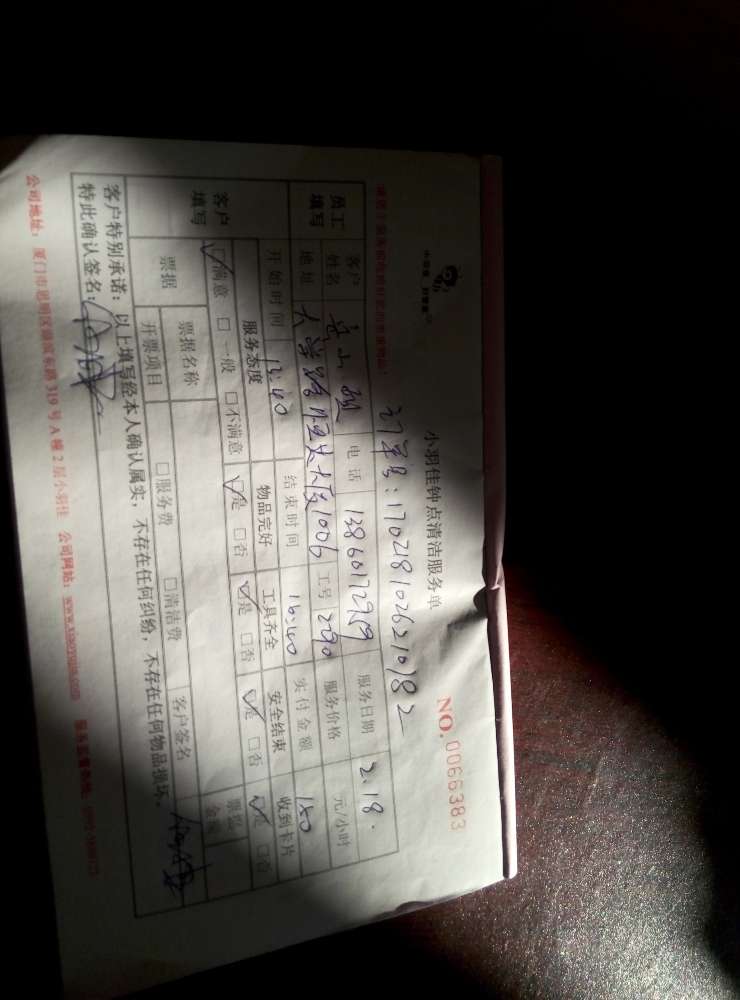 小羽佳钟点清洁服务单
NO. 0066383
订单号: 1702181026210782
员工填写 客户姓名 电话 13860172959 服务日期 2.18.
地址 大学路恒大大厦1006 工号 2290 服务价格 元/小时
开始时间 13:40 结束时间 16:40 实付金额 150
客户填写 服务态度 物品完好 工具齐全 安全结束 收到卡片
☑满意 □一般 □不满意 ☑是 □否 ☑是 □否 ☑是 □否 ☑是 □否
票据 票据名称 票据金额
开票项目 □服务费 □清洁费 客户签名
客户特别承诺：以上填写经本人确认属实，不存在任何纠纷，不存在任何物品损坏。
特此确认签名:
公司地址：厦门市思明区 东路319号A幢2层小羽佳 公司网站：www.xiaoyujia.com 服务监督热线: